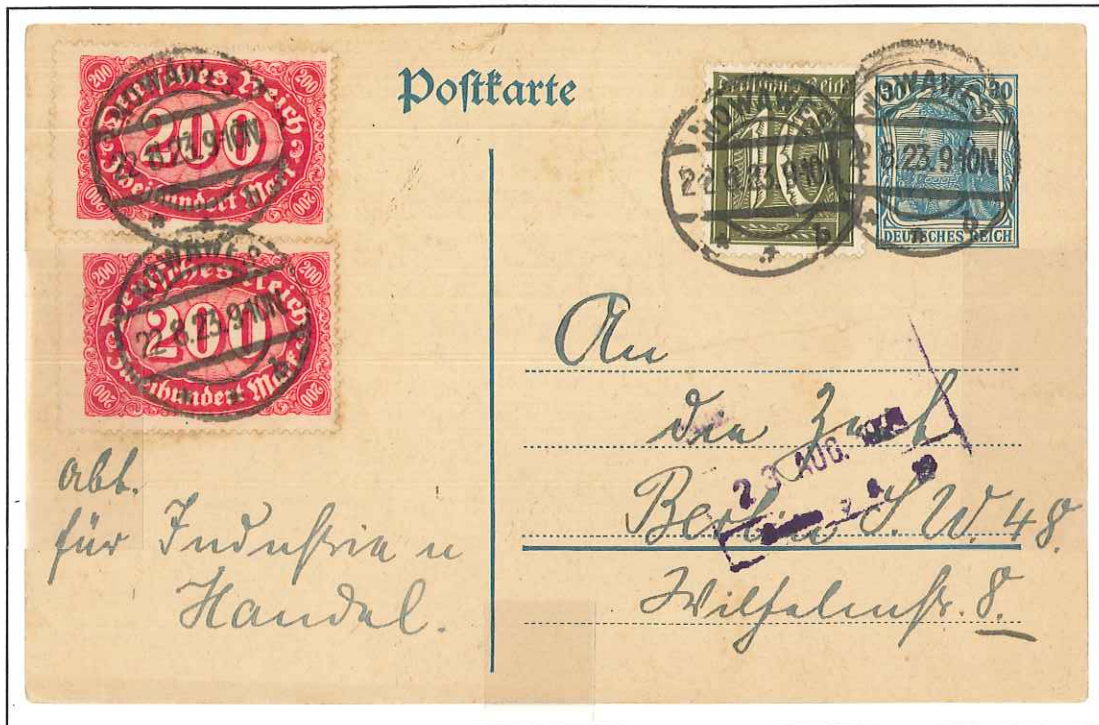 Postkarte
200 200
Deutsches Reich
200
Zweihundert Mark
200 200
NOWAWES
22.8.23.9-10N
* * b
200 200
Deutsches Reich
200
Zweihundert Mark
200 200
NOWAWES
22.8.23.9-10N
* * b
Deutsches Reich
NOWAWES
22.8.23.9-10N
* * b
30 30
DEUTSCHES REICH
NOWAWES
22.8.23.9-10N
* * b
An
die Zeit
Berlin S.W. 48.
Wilhelmstr. 8.
23 AUG.
Abt.
für Industrie u
Handel.